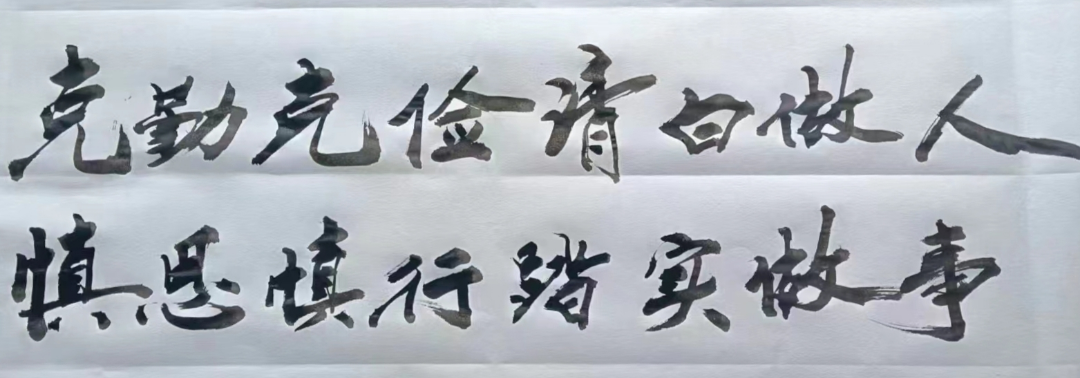 克勤克俭清白做人
慎思慎行踏实做事